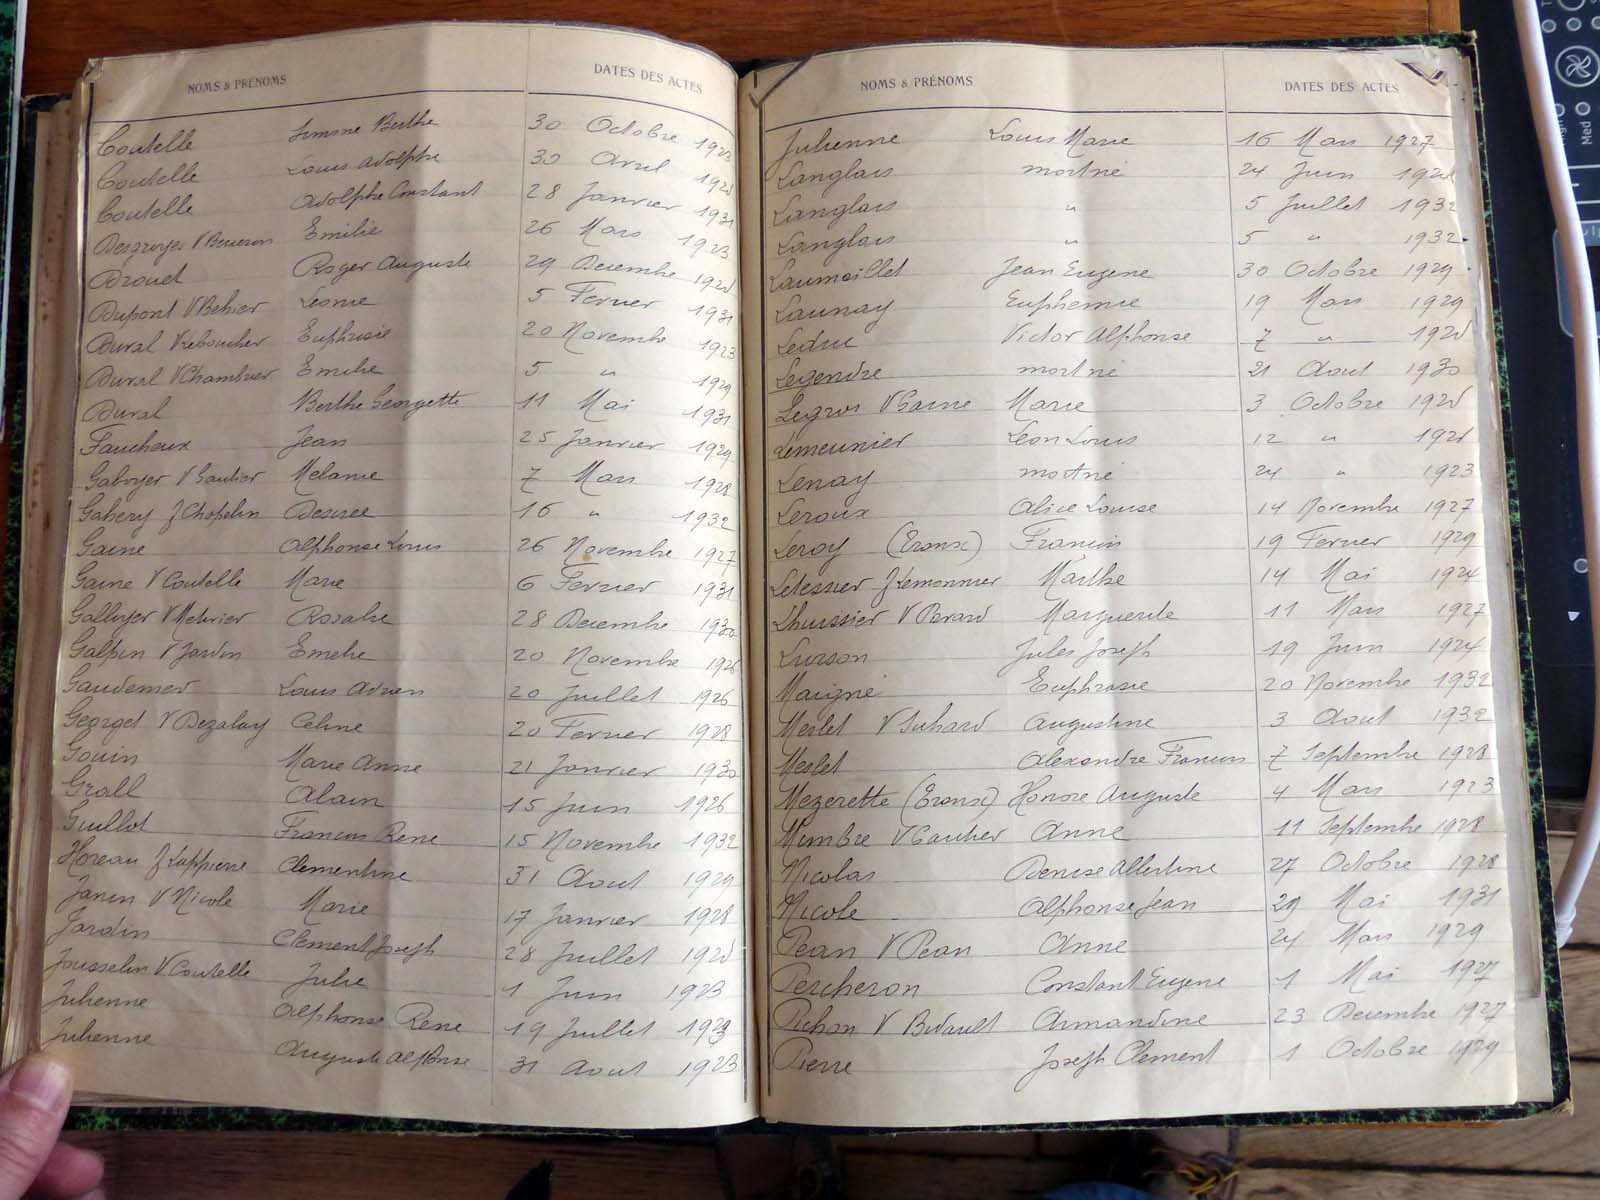 NOMS & PRÉNOMS DATES DES ACTES
Coutelle Simone Berthe 30 Octobre
Coutelle Louis Adolphe 30 Avril
Coutelle Adolphe Constant 28 Janvier 1931
Emilie 26 Mars 1923
Drouet Roger Auguste 29 Decembre
Dupont V Behier Leonie 5 Fevrier 1931
Duval V Reboucher Euphrasie 20 Novembre 1923
Duval V Chambrier Emilie 5 " 1929
Duval Berthe Georgette 11 Mai 1931
Faucheux Jean 25 Janvier 1929
Gaboyer V Gautier Melanie 7 Mars 1928
Gahery f Chopelin Desiree 16 " 1932
Gaine Alphonse Louis 26 Novembre 1927
Gaine V Coutelle Marie 6 Fevrier 1931
Galloyer V Metivier Rosalie 28 Decembre 1930
Galpin V Jardin Emelie 20 Novembre 1926
Gaudemer Louis Adrien 20 Juillet 1926
Georget V Dezalay Celine 20 Fevrier 1928
Gouin Marie Anne 21 Janvier 1930
Grall Alain 15 Juin 1926
Guillot Francois Rene 15 Novembre 1932
Horeau f Lappierre Clementine 31 Aout 1929
Janin V Nicole Marie 17 Janvier 1928
Jardin Clement Joseph 28 Juillet
Jousselin V Coutelle Julie 1 Juin 1923
Julienne Alphonse Rene 19 Juillet
Julienne Auguste Alfonse 31 Aout 1923
NOMS & PRÉNOMS DATES DES ACTES
Julienne Louis Marie 16 Mars 1927
Langlais mort né 24 Juin
Langlais " 5 Juillet 1932
Langlais " 5 " 1932
Laumaillet Jean Eugene 30 Octobre 1929
Launay Euphemie 19 Mars 1929
Leduc Victor Alphonse 7 "
Legendre mort né 21 Aout 1930
Legros V Gaine Marie 3 Octobre
Lemeunier Leon Louis 12 "
Lenay mort né 24 " 1923
Leroux Alice Louise 14 Novembre 1927
Leroy Francois 19 Fevrier 1929
Letessier f Lemonnier Marthe 14 Mai 1924
Lhuissier V Pavard Marguerite 11 Mars 1927
Lurson Jules Joseph 19 Juin 1924
Maigné Euphrasie 20 Novembre 1932
Meslet V Suhard Augustine 3 Aout 1932
Meslet Alexandre Francois 7 Septembre 1928
Mezerette Honore Auguste 4 Mars 1923
Mimbre V Gautier Anne 11 Septembre 1928
Nicolas Denise Albertine 27 Octobre 1928
Nicole Alphonse Jean 29 Mai 1931
Pean V Pean Anne 24 Mars 1929
Percheron Constant Eugene 1 Mai 1927
Pichon V Bidault Armandine 23 Decembre 1927
Pierre Joseph Clement 1 Octobre 1929
Med